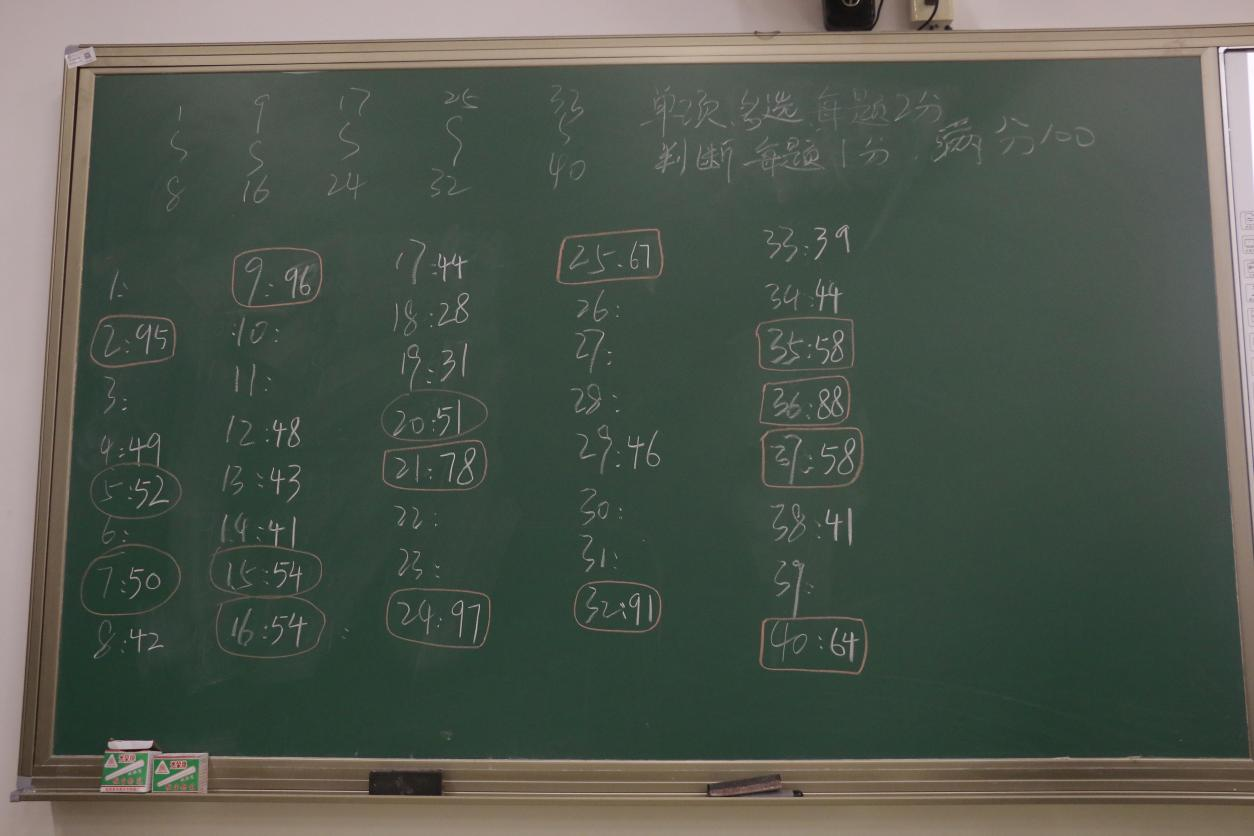 1 9 17 25 33 单项.多选.每题2分
5 5 5 5 5 判断每题1分.满分100
8 16 24 32 40
1: 9:96 17:44 25:67 33:39
2:95 10: 18:28 26: 34:44
3: 11: 19:31 27: 35:58
4:49 12:48 20:51 28: 36:88
5:52 13:43 21:78 29:46 37:58
6: 14:41 22: 30: 38:41
7:50 15:54 23: 31: 39:
8:42 16:54 24:97 32:91 40:64